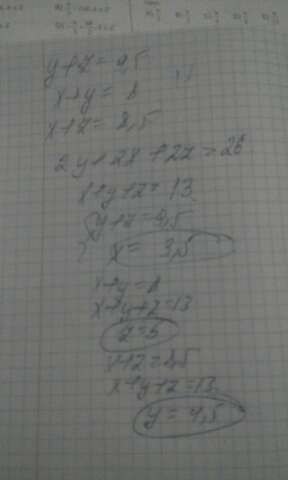 y+z=9,5
x+y=8
x+z=8,5
2y+2x+2z=26
x+y+z=13
y+z=9,5
x=3,5
x+y=8
x+y+z=13
z=5
x+z=8,5
x+y+z=13
y=4,5